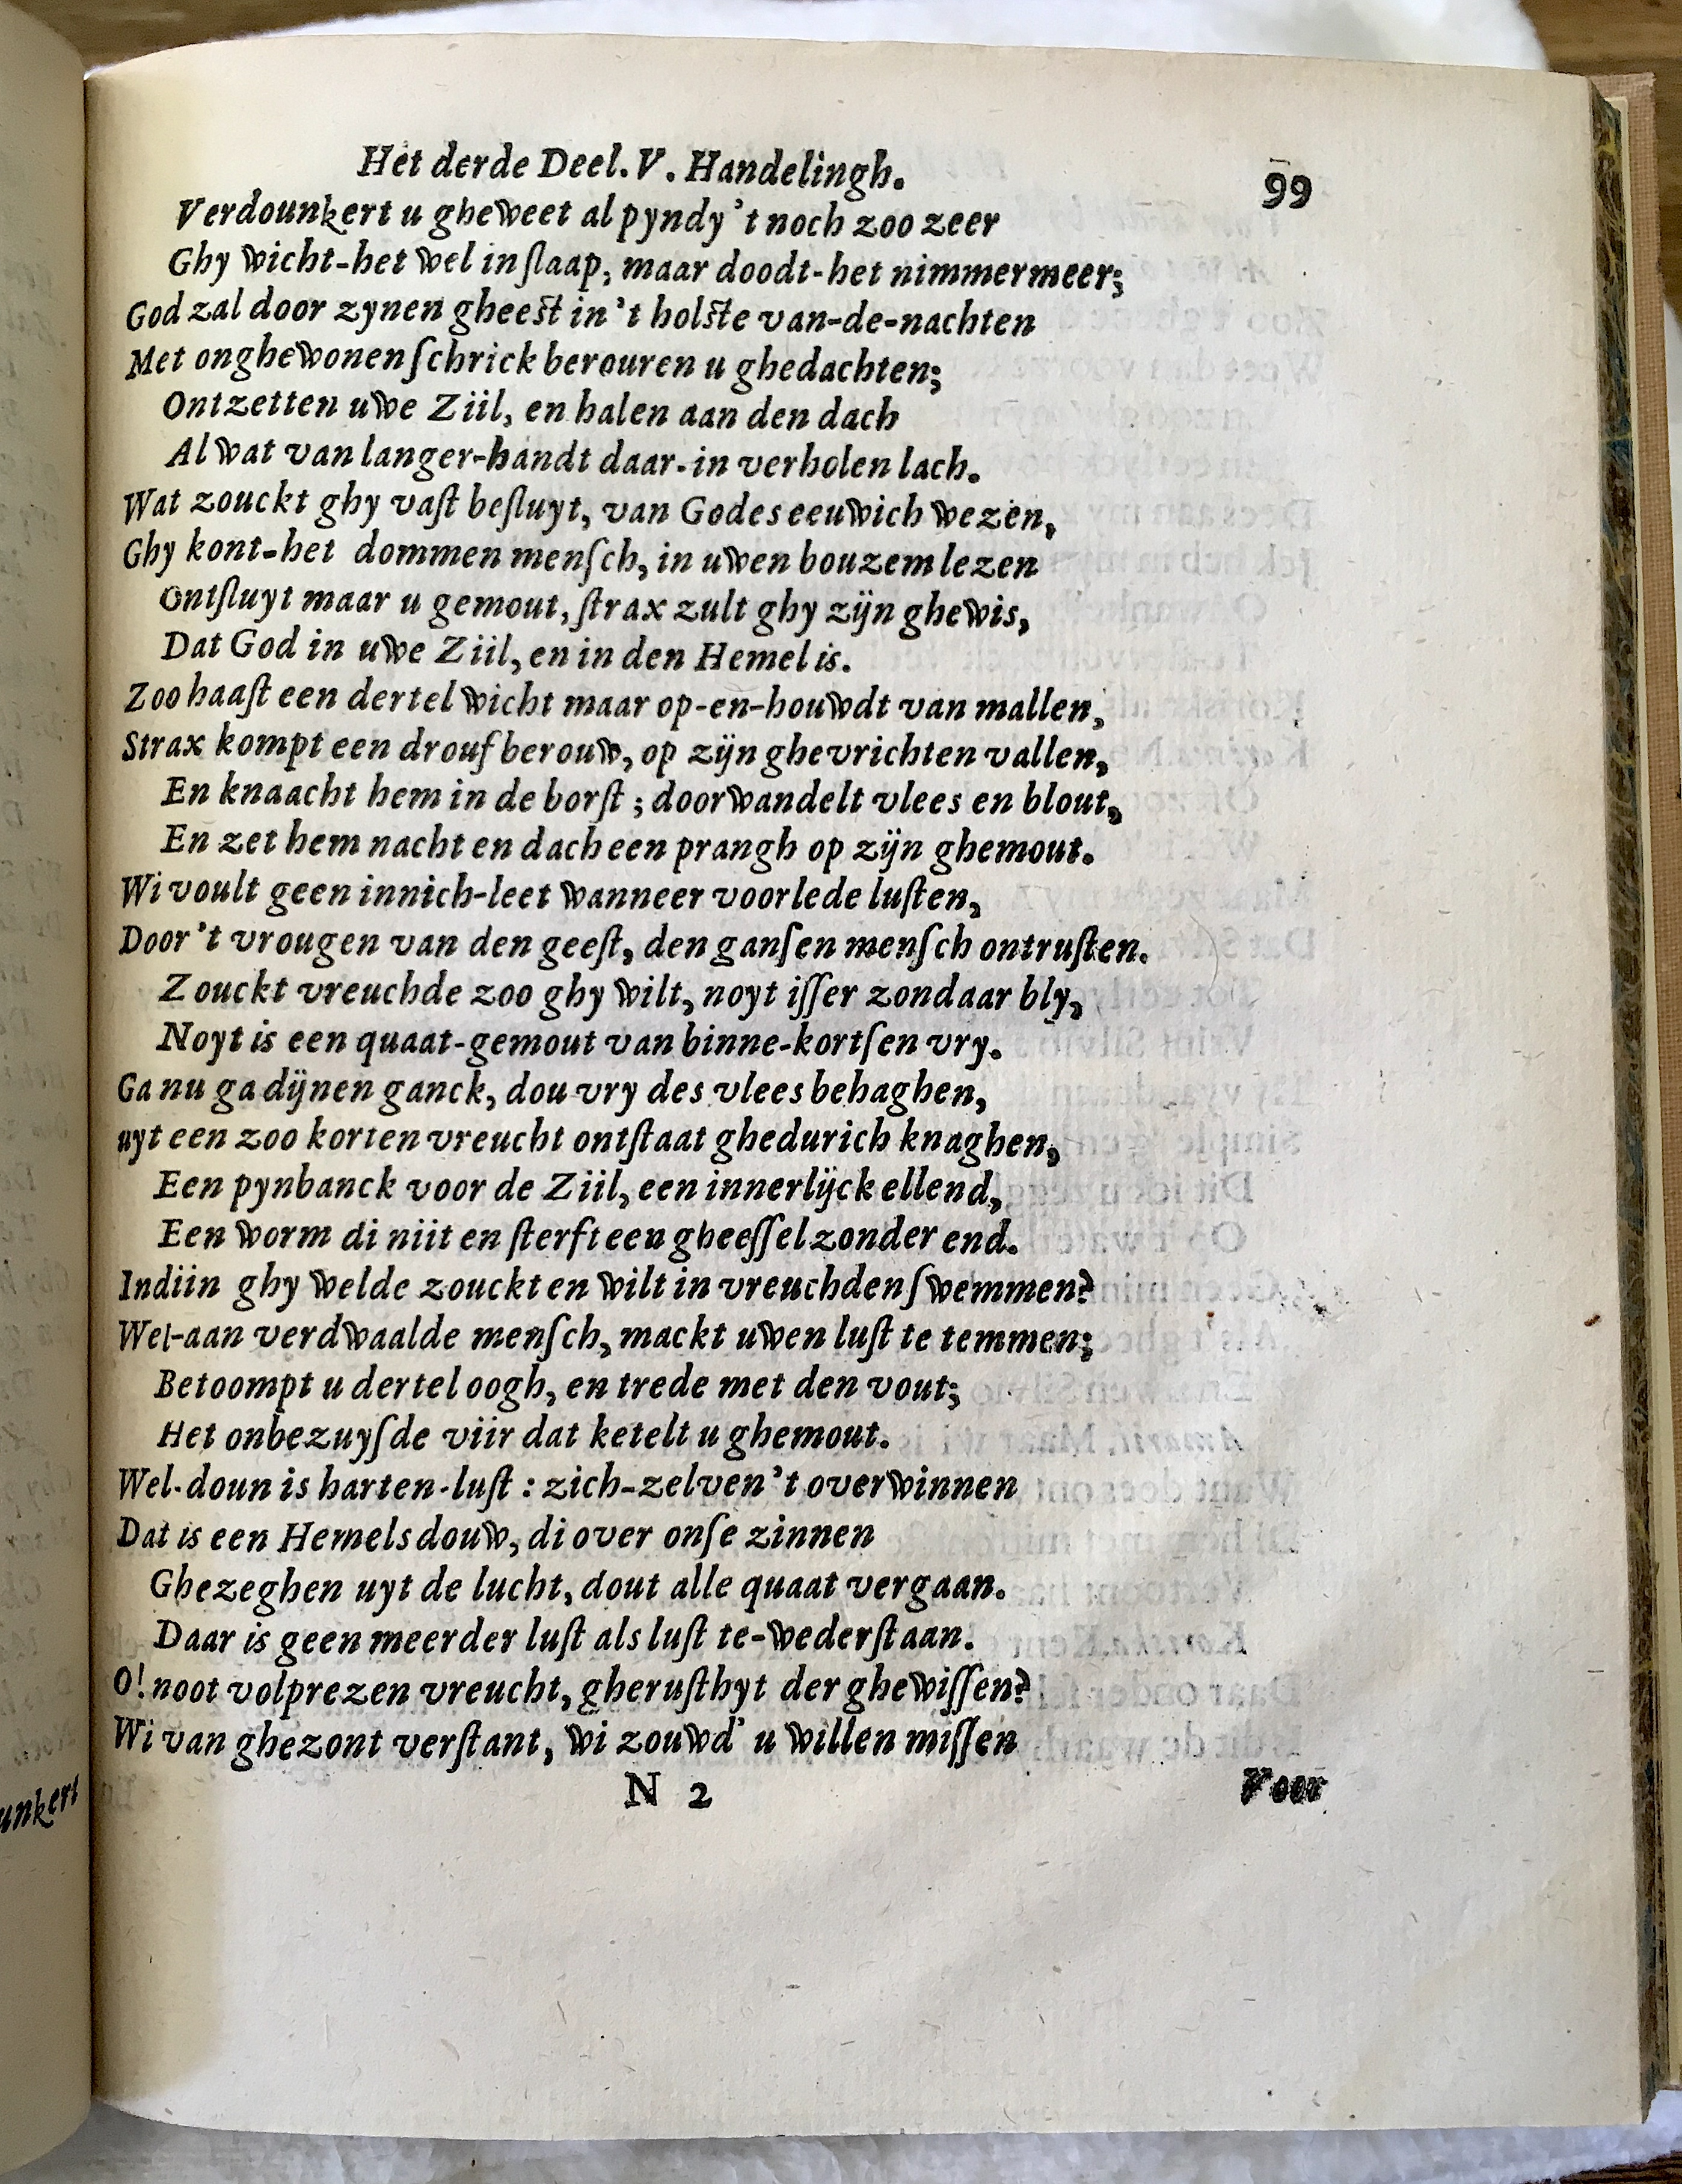 Het derde Deel. V. Handelingh.
99
Verdounkert u gheweet al pyndy 't noch zoo zeer
Ghy wicht-het wel in ſlaap, maar doodt-het nimmermeer;
God zal door zynen gheeſt in 't holſte van-de-nachten
Met onghewonen ſchrick berouren u ghedachten;
Ontzetten uwe Ziil, en halen aan den dach
Al wat van langer-handt daar-in verholen lach.
Wat zouckt ghy vaſt beſluyt, van Godes eeuwich wezen,
Ghy kont-het dommen menſch, in uwen bouzem lezen
Ontſluyt maar u gemout, ſtrax zult ghy zijn ghewis,
Dat God in uwe Ziil, en in den Hemel is.
Zoo haaſt een dertel wicht maar op-en-houwdt van mallen,
Strax kompt een drouf berouw, op zijn ghevrichten vallen,
En knaacht hem in de borſt; doorwandelt vlees en blout,
En zet hem nacht en dach een prangh op zijn ghemout.
Wi voult geen innich-leet wanneer voorlede luſten,
Door 't vrougen van den geeſt, den ganſen menſch ontruſten.
Zouckt vreuchde zoo ghy wilt, noyt iſſer zondaar bly,
Noyt is een quaat-gemout van binne-kortſen vry.
Ga nu ga dijnen ganck, dou vry des vlees behaghen,
uyt een zoo korten vreucht ontſtaat ghedurich knaghen,
Een pynbanck voor de Ziil, een innerlijck ellend,
Een worm di niit en ſterft een gheeſſel zonder end.
Indiin ghy welde zouckt en wilt in vreuchden ſwemmen?
Wel-aan verdwaalde menſch, mackt uwen luſt te temmen;
Betoompt u dertel oogh, en trede met den vout;
Het onbezuyſde viir dat ketelt u ghemout.
Wel-doun is harten-luſt : zich-zelven 't overwinnen
Dat is een Hemels douw, di over onſe zinnen
Ghezeghen uyt de lucht, dout alle quaat vergaan.
Daar is geen meerder luſt als luſt te-wederſtaan.
O! noot volprezen vreucht, gheruſthyt der ghewiſſen?
Wi van ghezont verſtant, wi zouwd' u willen miſſen
N 2
Voor
unkert